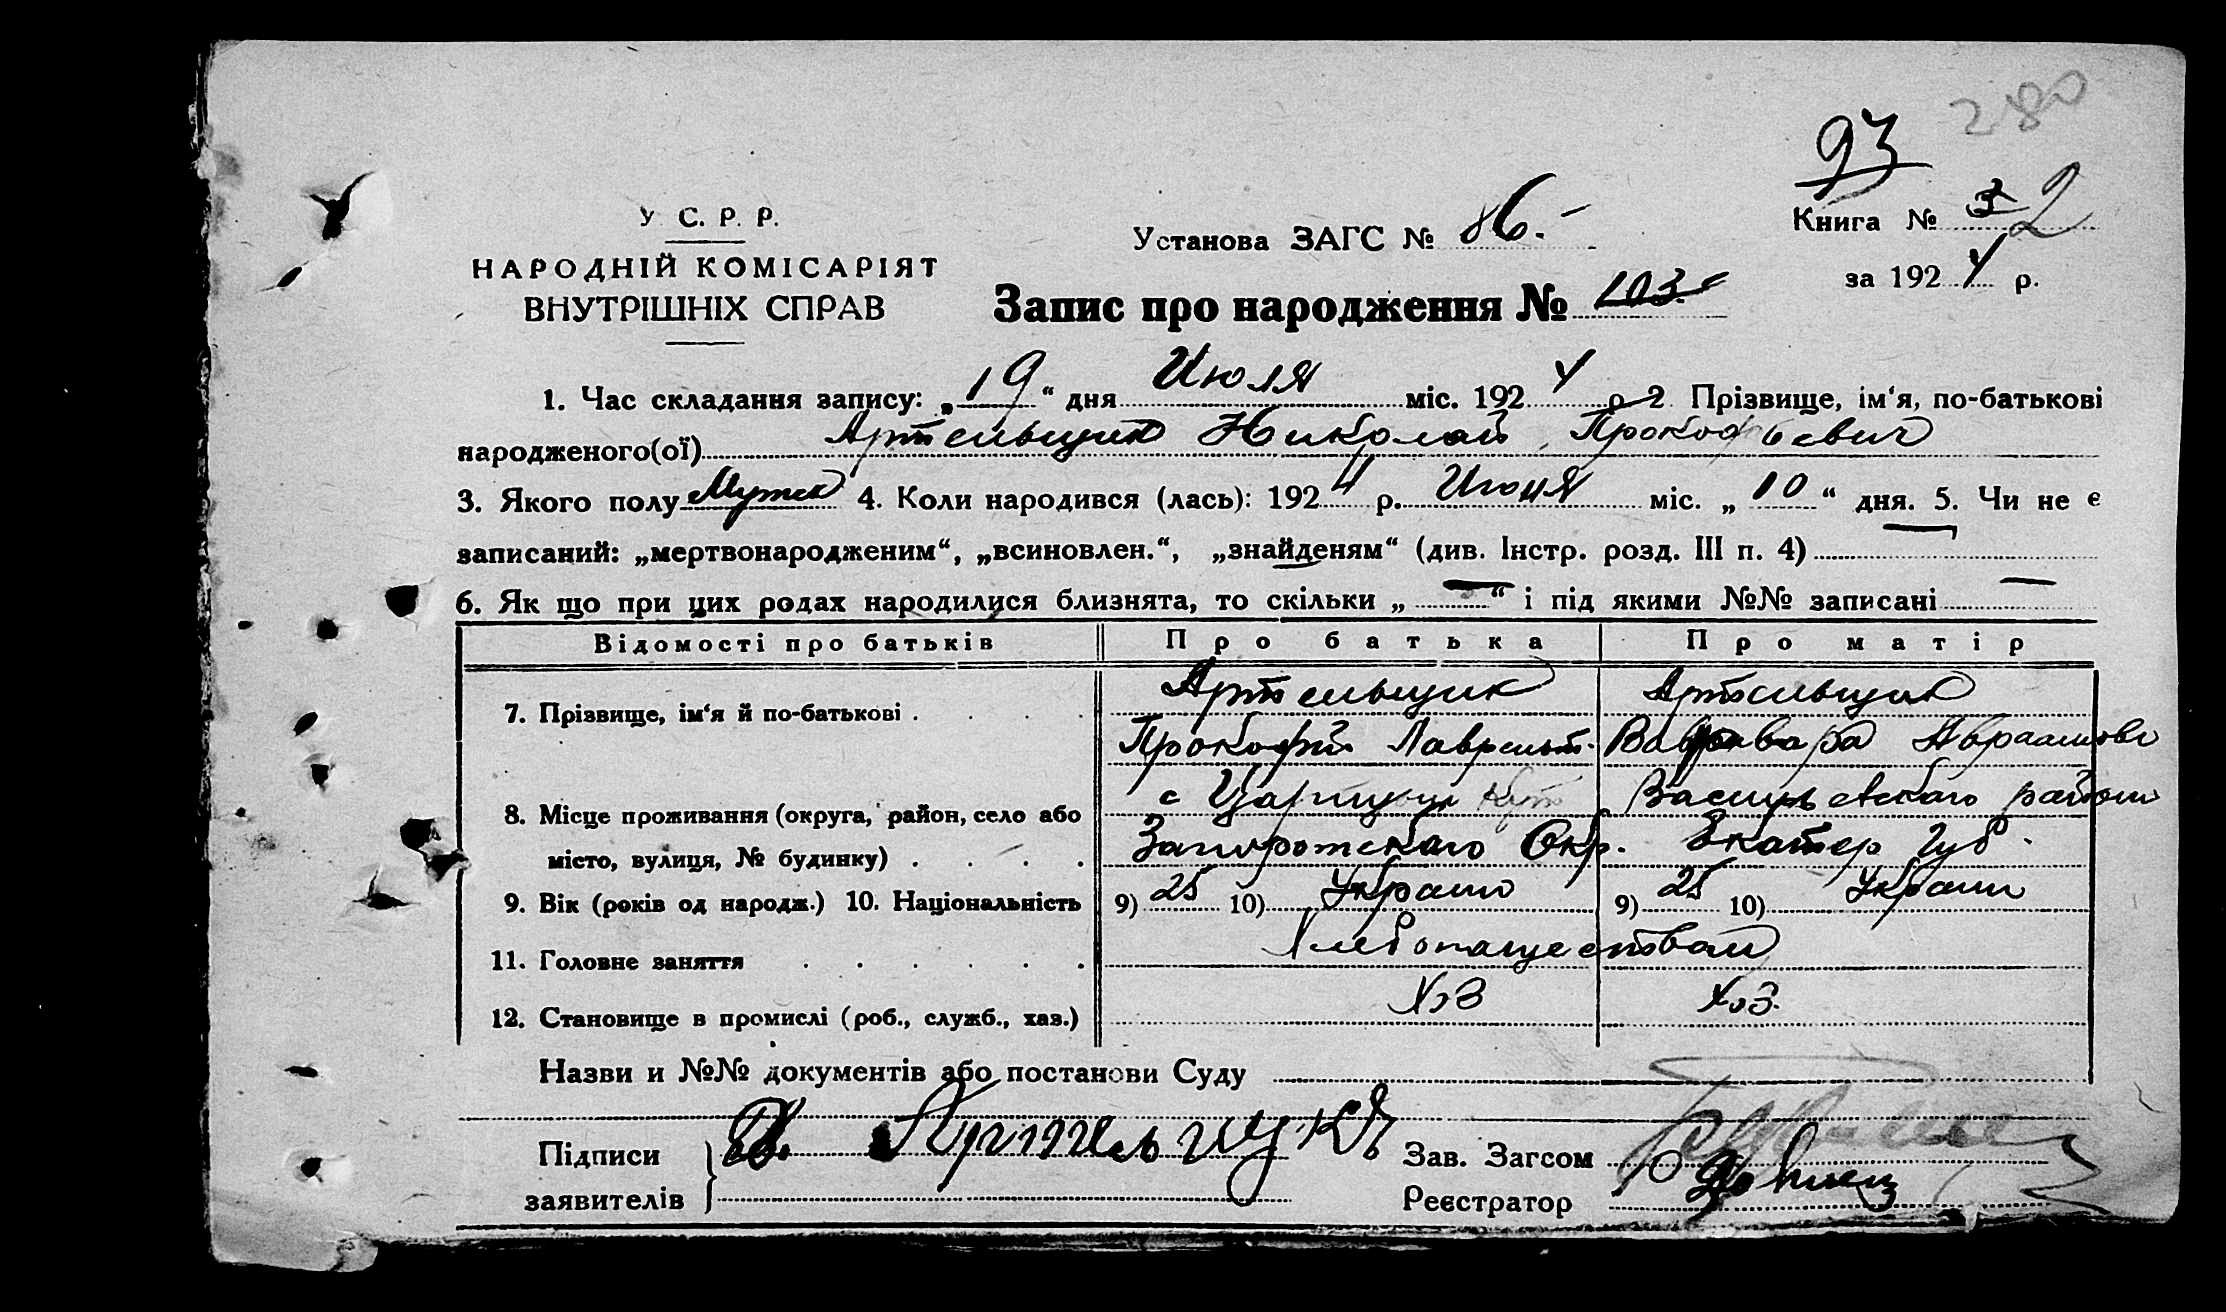 280
93
У С. Р. Р.
НАРОДНІЙ КОМІСАРІЯТ
ВНУТРІШНІХ СПРАВ
Установа ЗАГС № 86.-
Книга № 3 2
за 1924 р.
Запис про народження № 103.
1. Час складання запису: „19“ дня Июля міс. 1924 р 2 Прізвище, ім‘я, по-батькові
народженого(ої) Артельщик Николай Прокофьевич
3. Якого полу Мужск 4. Коли народився (лась): 1924 р. Июня міс. „10“ дня. 5. Чи не є
записаний: „мертвонародженим“, „всиновлен.“, „знайденям“ (див. Інстр. розд. III п. 4) —
6. Як що при цих родах народилися близнята, то скільки „—“ і під якими №№ записані —
Відомості про батьків Про батька Про матір
7. Прізвище, ім‘я й по-батькові . Артельщик Артельщик
Прокофій Лаврент. Варвара Авраамовн
8. Місце проживання (округа, район, село або с Царицын Кут Васильевского района
місто, вулиця, № будинку) . Запорожского Окр. Екатер Губ.
9. Вік (років од народж.) 10. Національність 9) 25 10) Украин 9) 25 10) Украин
11. Головне заняття Хлебопашеством
12. Становище в промислі (роб., служб., хаз.) Хоз Хоз.
Назви и №№ документів або постанови Суду
Підписи Артельщикъ Зав. Загсом
заявителів Реєстратор